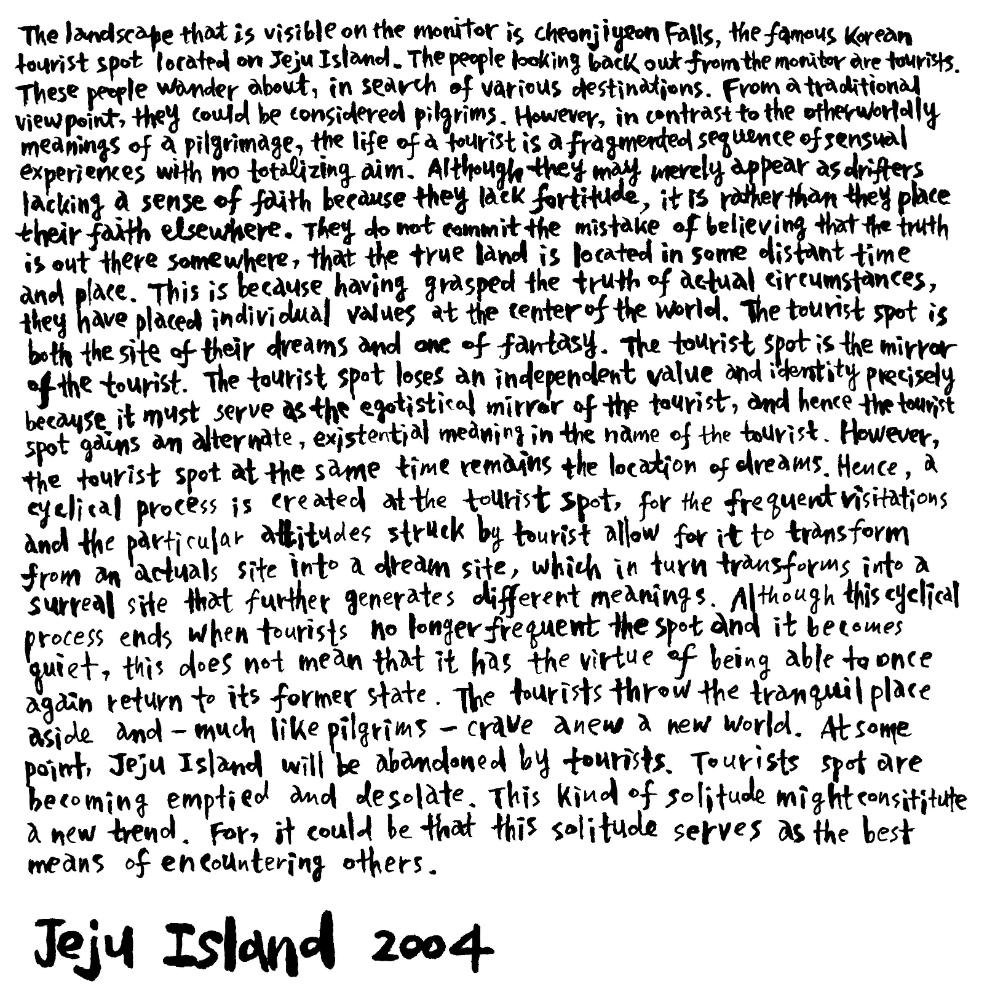 The landscape that is visible on the monitor is cheonjiyeon Falls, the famous Korean
tourist spot located on Jeju Island. The people looking back out from the monitor are tourists.
These people wander about, in search of various destinations. From a traditional
viewpoint, they could be considered pilgrims. However, in contrast to the otherworldly
meanings of a pilgrimage, the life of a tourist is a fragmented sequence of sensual
experiences with no totalizing aim. Although they may merely appear as drifters
lacking a sense of faith because they lack fortitude, it is rather than they place
their faith elsewhere. They do not commit the mistake of believing that the truth
is out there somewhere, that the true land is located in some distant time
and place. This is because having grasped the truth of actual circumstances,
they have placed individual values at the center of the world. The tourist spot is
both the site of their dreams and one of fantasy. The tourist spot is the mirror
of the tourist. The tourist spot loses an independent value and identity precisely
because it must serve as the egotistical mirror of the tourist, and hence the tourist
spot gains an alternate, existential meaning in the name of the tourist. However,
the tourist spot at the same time remains the location of dreams. Hence, a
cyclical process is created at the tourist spot, for the frequent visitations
and the particular attitudes struck by tourist allow for it to transform
from an actuals site into a dream site, which in turn transforms into a
surreal site that further generates different meanings. Although this cyclical
process ends when tourists no longer frequent the spot and it becomes
quiet, this does not mean that it has the virtue of being able to once
again return to its former state. The tourists throw the tranquil place
aside and - much like pilgrims - crave anew a new world. At some
point, Jeju Island will be abandoned by tourists. Tourists spot are
becoming emptied and desolate. This kind of solitude might consititute
a new trend. For, it could be that this solitude serves as the best
means of encountering others.
Jeju Island 2004